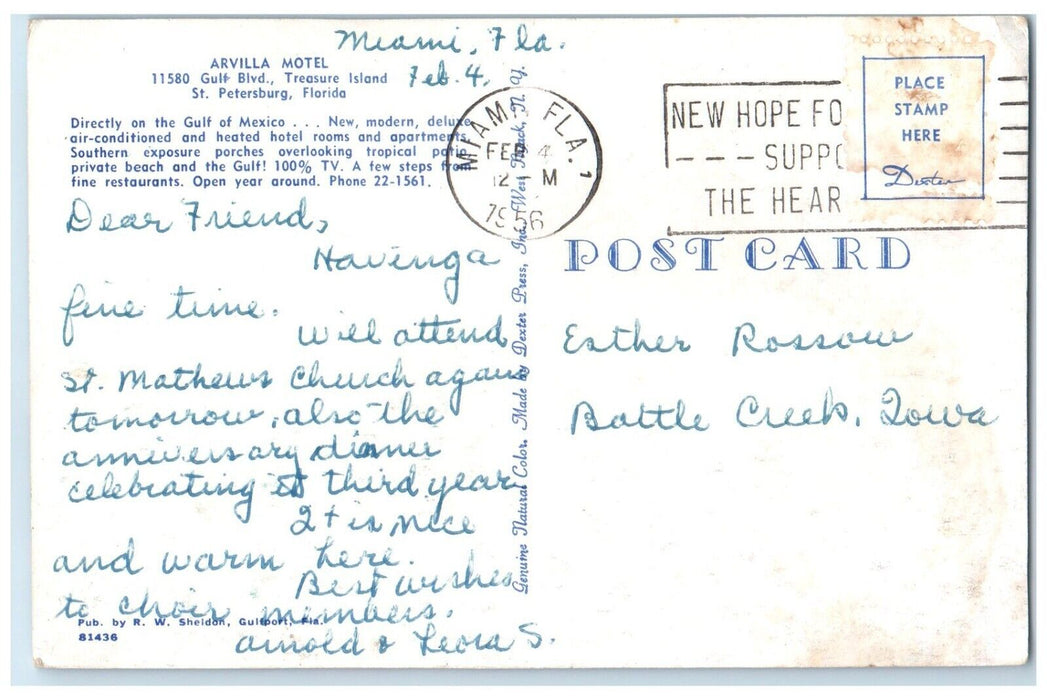 Miami, Fla.
Feb. 4,
ARVILLA MOTEL
11580 Gulf Blvd., Treasure Island
St. Petersburg, Florida
Directly on the Gulf of Mexico . . . New, modern, deluxe
air-conditioned and heated hotel rooms and apartments.
Southern exposure porches overlooking tropical patio,
private beach and the Gulf! 100% TV. A few steps from
fine restaurants. Open year around. Phone 22-1561.
Dear Friend,
Havinga
fine time.
Will attend
St. Mathews Church again
tomorrow, also the
anniversary dinner
celebrating its third year
It is nice
and warm here.
Best wishes
to choir members.
Arnold & Leora S.
Pub. by R. W. Sheldon, Gulfport, Fla.
81436
Genuine Natural Color. Made by Dexter Press, Inc., West Nyack, N. Y.
MIAMI FLA. 1
FEB 4
12 M
1956
NEW HOPE FO
--- SUPPO
THE HEAR
PLACE
STAMP
HERE
Dexter
POST CARD
Esther Rossow
Battle Creek, Iowa